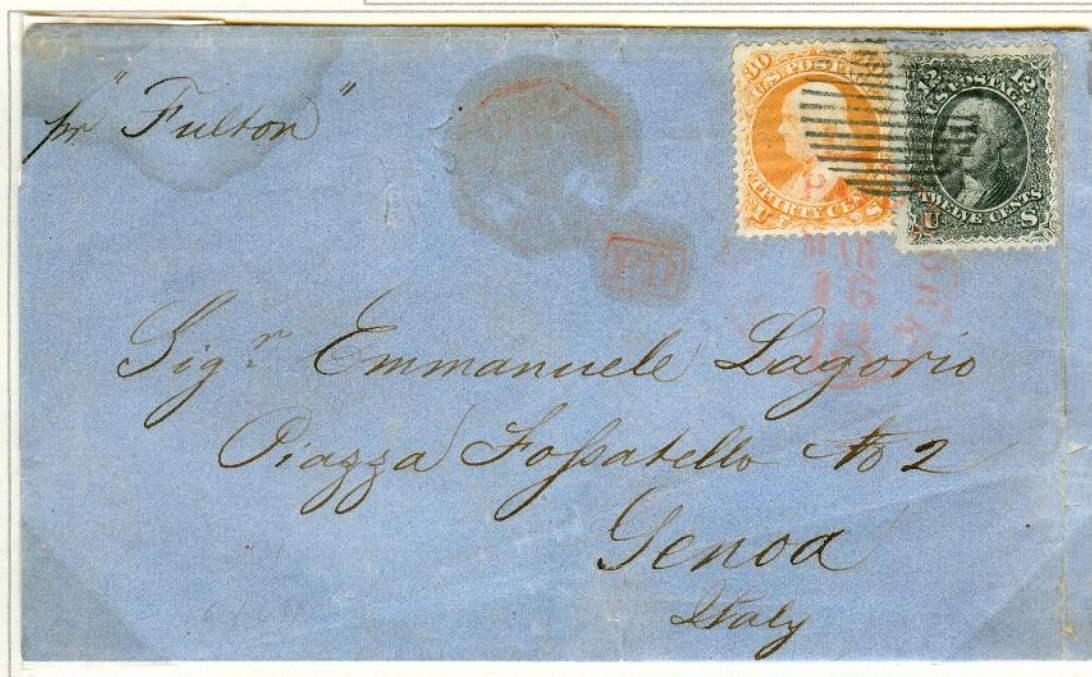 pr "Fulton"
30 U.S. POSTAGE
THIRTY CENTS
U S
12 12
U.S. POSTAGE
TWELVE CENTS
U S
PD
MAR
16
18
Sigr Emmanuele Lagorio
Piazza Fossatello No 2
Genoa
Italy